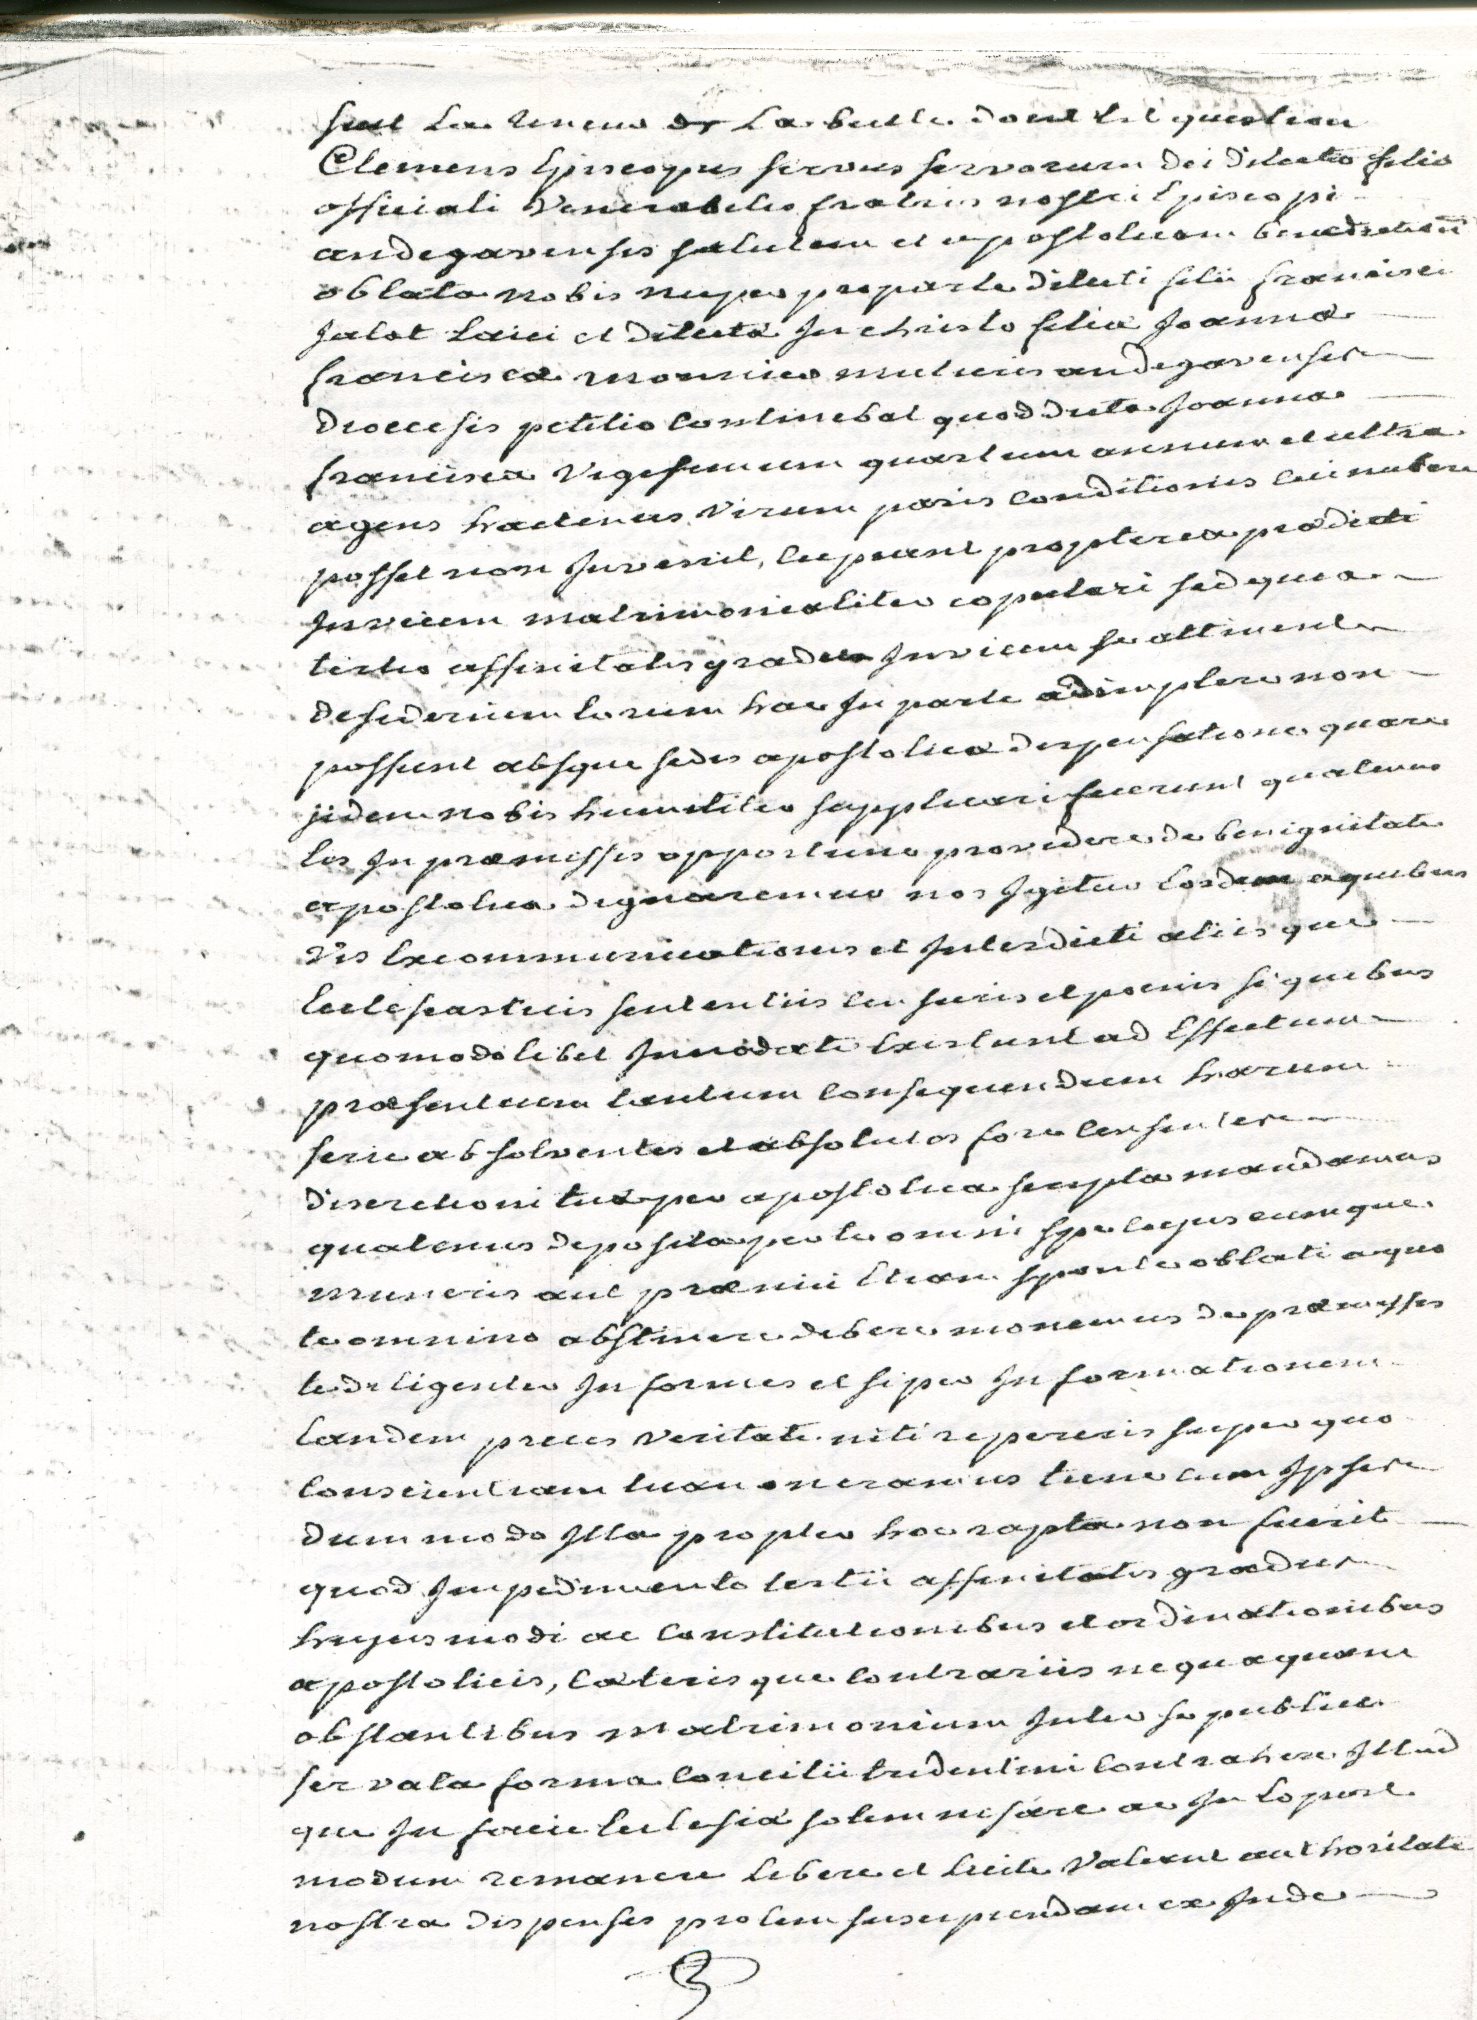 suit la teneur de la bulle dont est question
Clemens Episcopus servus servorum dei dilecto filio
officiali Venerabilis fratris nostri Episcopi
andegavensis salutem et apostolicam benedictionē
oblata nobis nuper pro parte dilecti filii francisci
Jalot Laici et dilectæ In christo filiæ Joannæ
franciscæ mulieris andegavensis
diœcesis petitio Continebat quod dicta Joanna
francisca Vigesimum quartum annum et ultra
agens hactenus Virum paris Conditionis Cui nubere
posset non Invenit, Cupiunt propterea prædicti
Invicem matrimonialiter copulari sed quia
tertio affinitatis gradu Invicem se attinent
desiderium Eorum hac In parte adimplere non
possunt absque sedis apostolicæ dispensatione quare
iidem nobis humiliter supplicari fecerunt quatenus
Eis In præmissis opportune providere de benignitate
apostolica dignaremur nos Igitur Eosdem a quibus
vis Excommunicationis et Interdicti aliis que
Ecclesiasticis sententiis Censuris et pœnis si quibus
quomodolibet Innodati Existunt ad Effectum
præsentium tantum Consequendum harum
serie absolventes et absolutos fore Censentes
discretioni tuæ per apostolica scripta mandamus
quatenus deposita per te omni spe Cujuscumque
muneris aut præmii Etiam sponte oblati a quo
te omnino abstinere debere monemus de præmissis
te diligenter Informes et si per Informationem
Eandem preces Veritate niti repereris super quo
Conscientiam tuam oneramus tunc Cum Ipsis
dummodo Illa propter hoc rapta non fuerit
quod Impedimento tertii affinitatis gradus
hujusmodi ac Constitutionibus et ordinationibus
apostolicis, Cæteris que Contrariis nequaquam
obstantibus matrimonium Inter se publice
servata forma Concilii tridentini Contrahere Illud
que In facie Ecclesiæ solemnisare ac In Eo post
modum remanere Libere et Licite Valeant authoritate
nostra dispenses prolem suscipiendam ex Inde